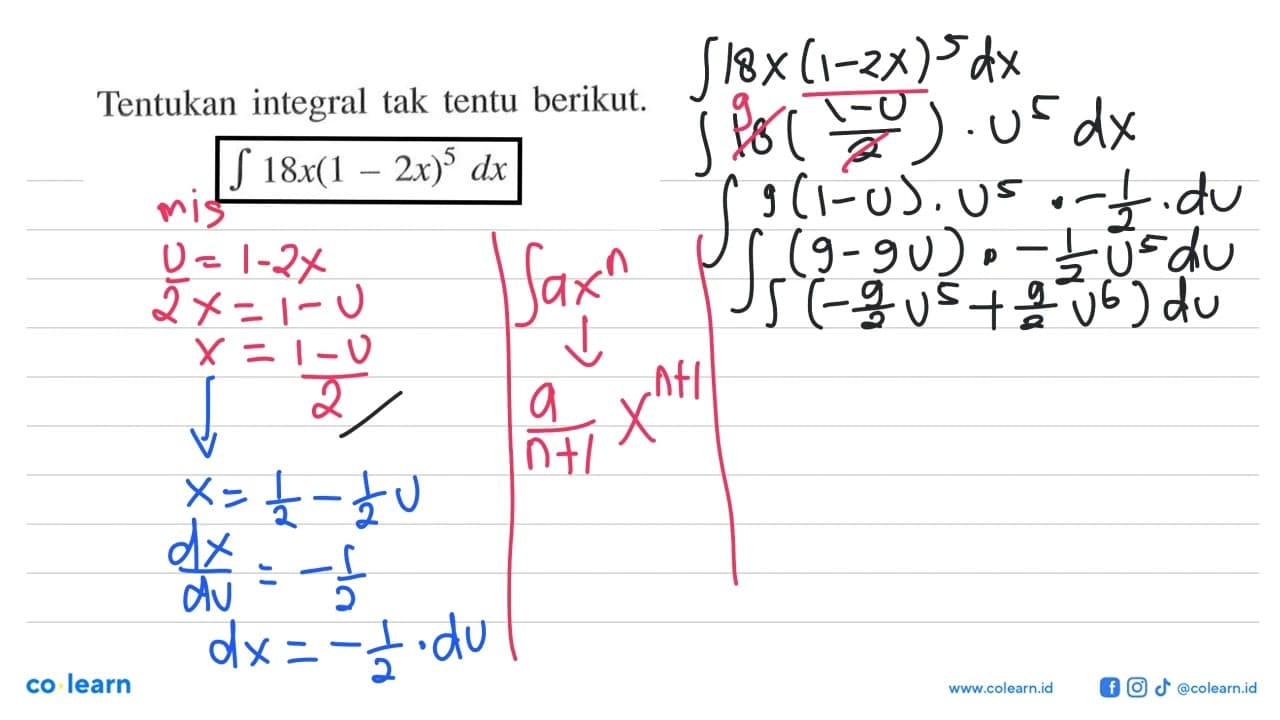 Tentukan integral tak tentu berikut.
∫ 18x(1 – 2x)⁵ dx
mis
U = 1-2x
2x = 1-U
x = (1-U)/2
x = 1/2 - 1/2 U
dx/dU = -1/2
dx = -1/2 . dU
∫ax^n
↓
a/(n+1) x^(n+1)
∫18x(1-2x)⁵ dx
∫ 9 18((1-U)/2) . U⁵ dx
∫ 9(1-U). U⁵ . -1/2 . dU
∫ (9-9U) . -1/2 U⁵ dU
∫ ∫ (-9/2 U⁵ + 9/2 U⁶) dU
co learn
www.colearn.id
@colearn.id